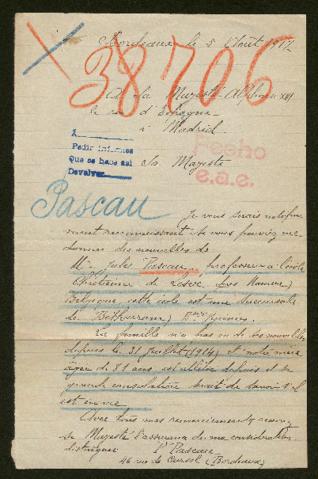 Bordeaux le 5 Août 1917
38706
A sa Majesté Alphonse XIII
le roi d'Espagne
à Madrid
Fecho
e.a.e.
A
Pedir informes
Que se hace así
Devolver
Sa Majesté
Pascau
Je vous serais
reconnaissant si vous pouviez me
donner des nouvelles de
Mr Jules Pascau, professeur à l'école
chrétienne de
Belgique cette école est une succursale
de Betharram
La famille n'a pas eu de nouvelles
depuis le 31 juillet (1914) et notre mère
âgée de 81 ans est alitée depuis et
grande consolation serait de savoir s'il
est en vie
Avec tous mes remerciements
Sa Majesté l'assurance de ma considération
distinguée
P. Pascau
46 rue de Cursol (Bordeaux)